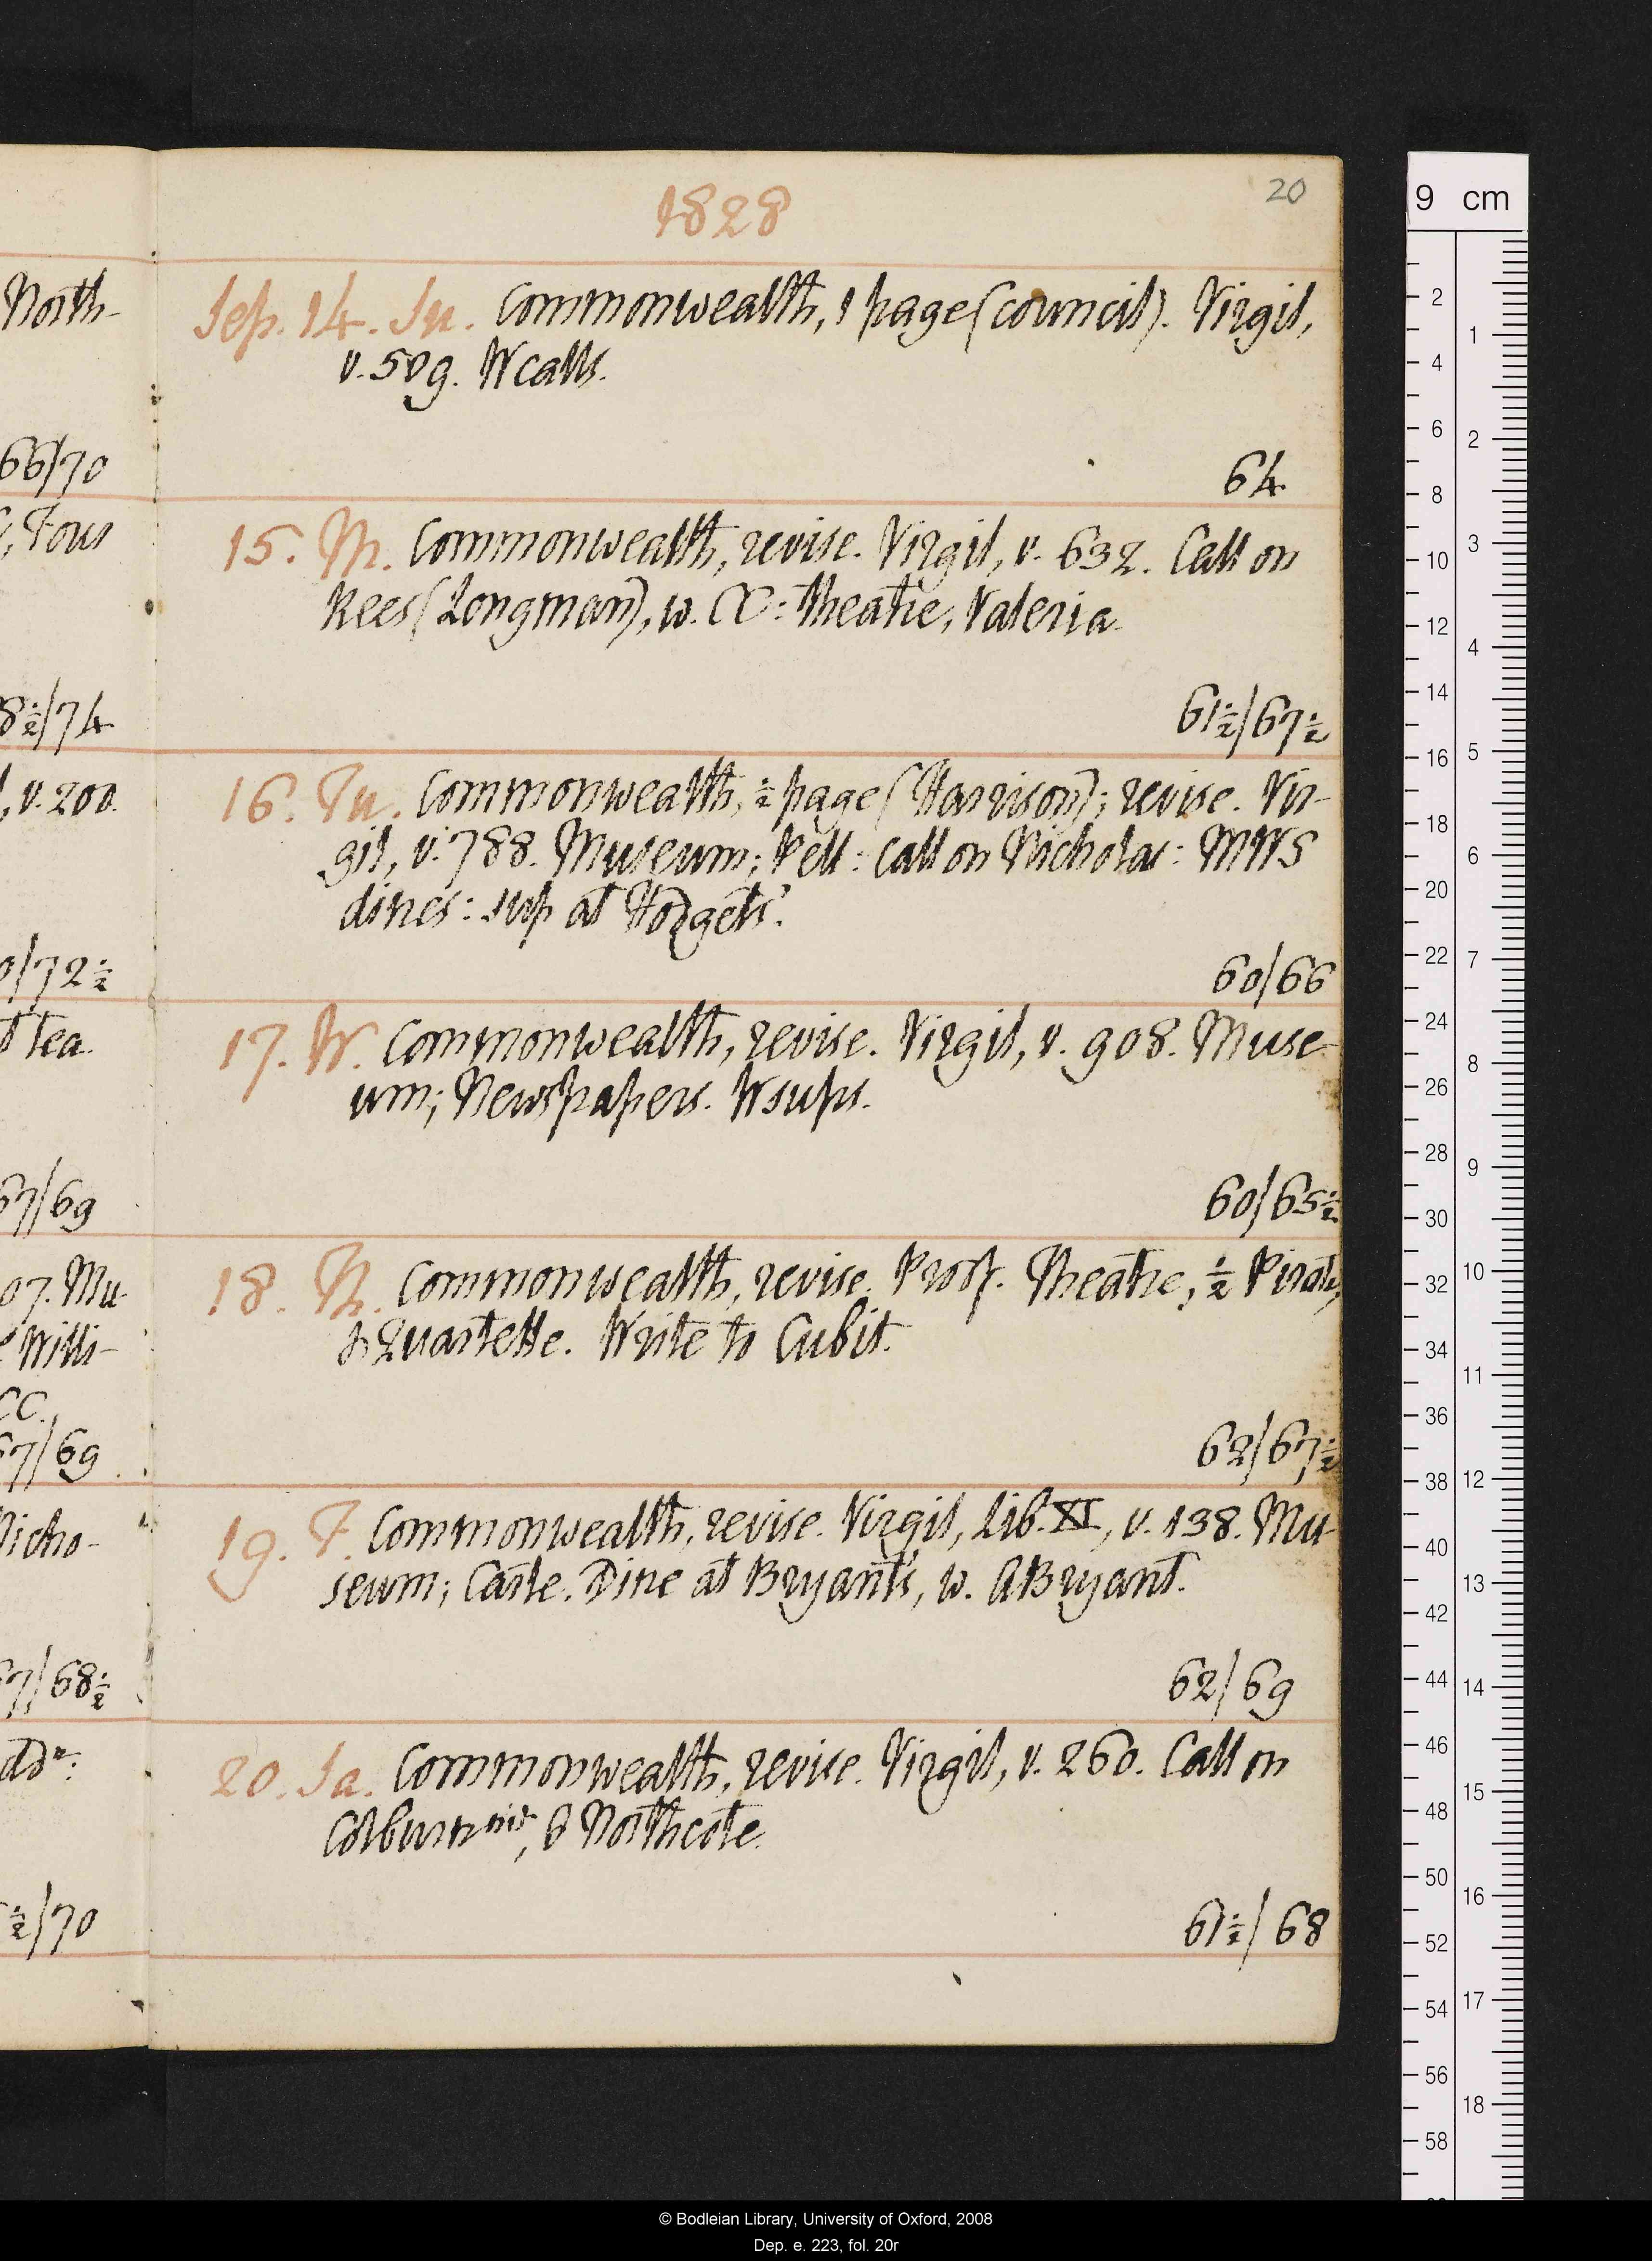 1828
20
Sep. 14. Su. Commonwealth, 1 page (council). Virgil,
v. 509. W calls.
64
15. M. Commonwealth, revise. Virgil, v. 632. Call on
Rees (Longman), w. CC: theatre, Valeria.
61½/67½
16. Tu. Commonwealth, ½ page (Harrison); revise. Vir-
gil, v. 788. Museum; Pell: call on Nicholas: MWS
dines: sup at Hodgets'.
60/66
17. W. Commonwealth, revise. Virgil, v. 908. Muse-
um; Newspapers. W sups.
60/65½
18. Th. Commonwealth, revise. Proof. Theatre, ½ Pirate,
& Quartette. Write to Cubit.
62/67½
19. F. Commonwealth, revise. Virgil, Lib. XI, v. 138. Mu-
seum; Carte. Dine at Bryant's, w. ABryant.
62/69
20. Sa. Commonwealth, revise. Virgil, v. 260. Call on
Colburn nit, & Northcote.
61½/68
North-
66/70
, Fous
8½/74
, v. 200.
0/72½
t tea.
67/69
07. Mu-
Willi-
CC.
67/69
Nicho-
67/68½
½/70
9 cm
2
4
6
8
10
12
14
16
18
20
22
24
26
28
30
32
34
36
38
40
42
44
46
48
50
52
54
56
58
1
2
3
4
5
6
7
8
9
10
11
12
13
14
15
16
17
18
© Bodleian Library, University of Oxford, 2008
Dep. e. 223, fol. 20r